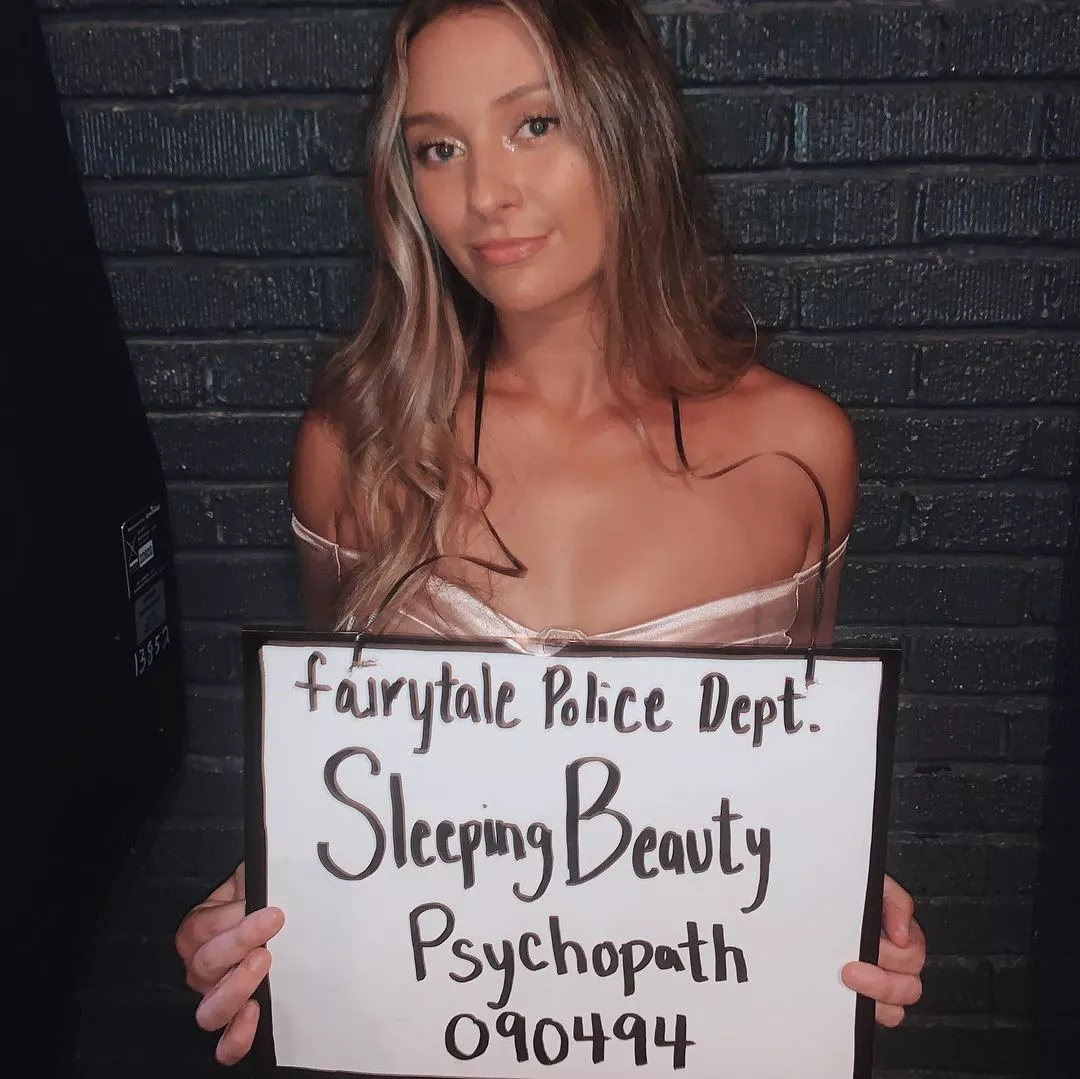 fairytale Police Dept.
Sleeping Beauty
Psychopath
090494